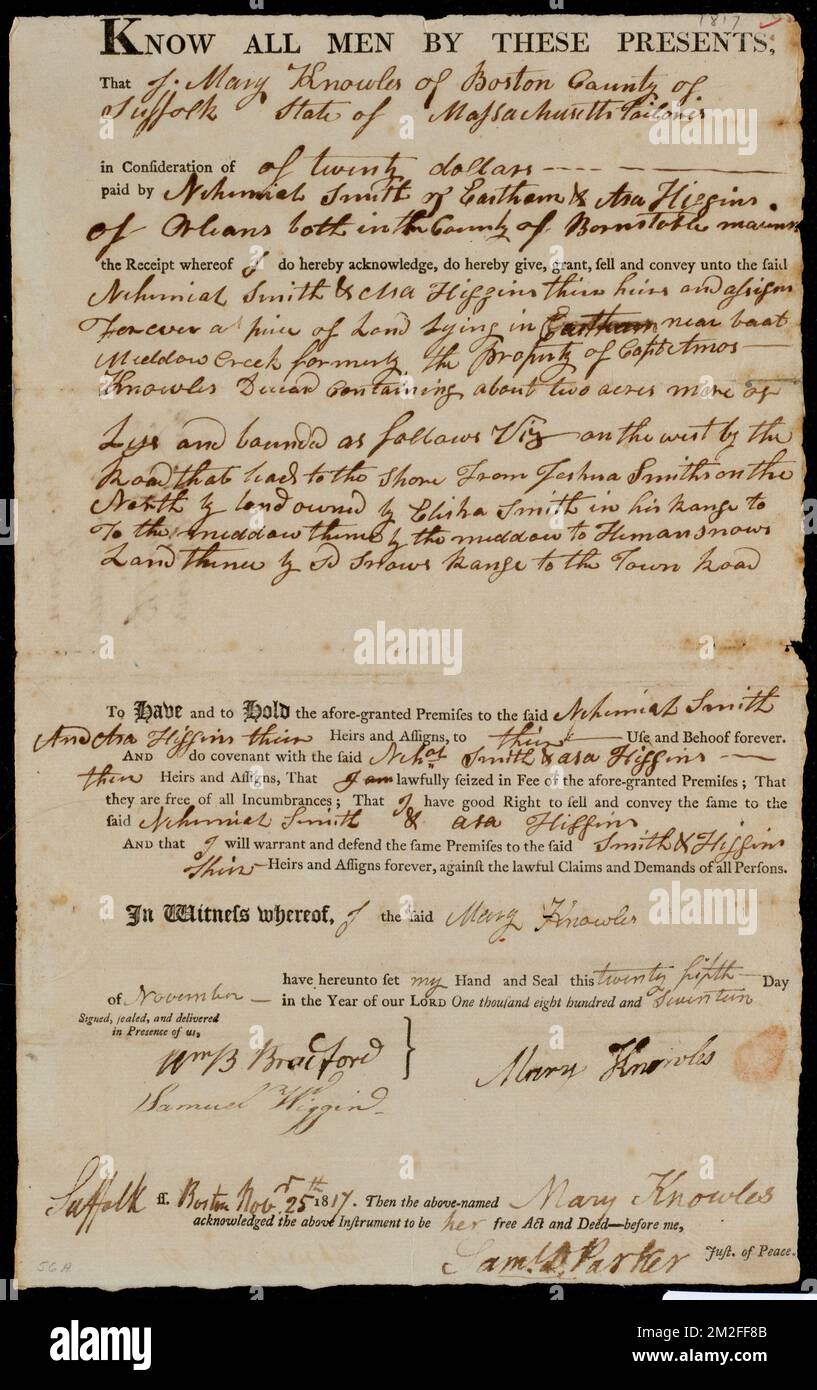 1817
KNOW ALL MEN BY THESE PRESENTS,
That I Mary Knowles of Boston County of
Suffolk State of Massachusetts
in Consideration of of twenty dollars
paid by Nehemiah Smith of Eastham & Asa Higgins
of Orleans both in the County of Bornstable
the Receipt whereof I do hereby acknowledge, do hereby give, grant, sell and convey unto the said
Nehemiah Smith & Asa Higgins thier heirs and assigns
Forever a piece of Land Lying in Eastham near boat
Meddow Creek formerly the Property of Capt Amos
Knowles Containing about two acres more or
Less and bounded as follows Viz on the west by the
Road that leads to the Shore From Joshua Smiths on the
North by land owned by Elisha Smith in his Range to
To the meddow thence by the meddow to Heman Snows
Land thence by Sd Snows Range to the Town Road
To Have and to Hold the afore-granted Premises to the said Nehemiah Smith
And Asa Higgins thier Heirs and Assigns, to thier Use and Behoof forever.
AND do covenant with the said Nehah Smith & asa Higgins
thier Heirs and Assigns, That I am lawfully seized in Fee of the afore-granted Premises; That
they are free of all Incumbrances; That I have good Right to sell and convey the same to the
said Nehemiah Smith & asa Higgins
AND that I will warrant and defend the same Premises to the said Smith & Higgins
thier Heirs and Assigns forever, against the lawful Claims and Demands of all Persons.
In Witness whereof, I the said Mary Knowles
have hereunto set my Hand and Seal this twenty fifth Day
of November in the Year of our LORD One thousand eight hundred and Seventeen
Signed, sealed, and delivered
in Presence of us,
Wm B Bradford
Mary Knowles
Samuel Higgins
Suffolk ss. Boston Novr 25th 1817. Then the above-named Mary Knowles
acknowledged the above Instrument to be her free Act and Deed—before me,
Saml D. Parker Just. of Peace.
56A
alamy
Image ID: 2M2FF8B
www.alamy.com